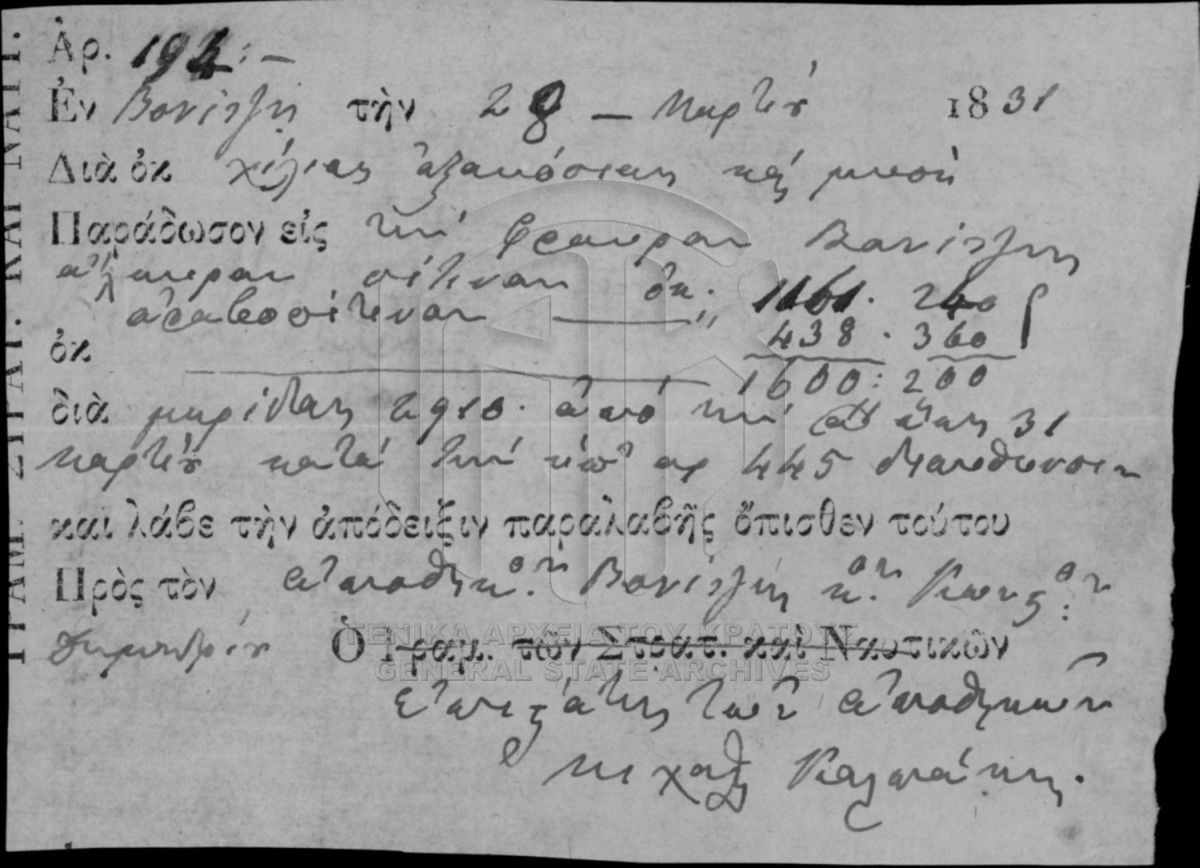 Ἀρ. 194:-
Ἐν Βονίτζῃ τὴν 28 — Μαρτίου 1831
Διὰ ὀκ χίλιας ἑξακόσιας καὶ μισὴ
Παράδωσον εἰς τὴν φρουρὰν Βονίτζης
ἄλευρον σίτινον ὀκ. 1161. 240
ἀραβοσίτινον ——— " 438. 360
ὀκ ——— 1600: 200
διὰ μερίδας 2910. ἀπὸ τὴν ἕως 31
Μαρτίου κατὰ τὴν ὑπ' ἀρ 445 διευθυνσιν
καὶ λάβε τὴν ἀπόδειξιν παραλαβῆς ὄπισθεν τούτου
Πρὸς τὸν ἀποθηκ.ον Βονίτζης κ.ον Κωνσ:ον
Δημητρίου Ὁ Γραμ. τῶν Στρατ. καὶ Ναυτικῶν
ἐπιστάτης τῶν ἀποθηκῶν
Μιχαὴλ
ΓΡΑΜ. ΣΤΡΑΤ. ΚΑΙ ΝΑΥΤ.
ΓΕΝΙΚΑ ΑΡΧΕΙΑ ΤΟΥ ΚΡΑΤΟΥΣ
GENERAL STATE ARCHIVES